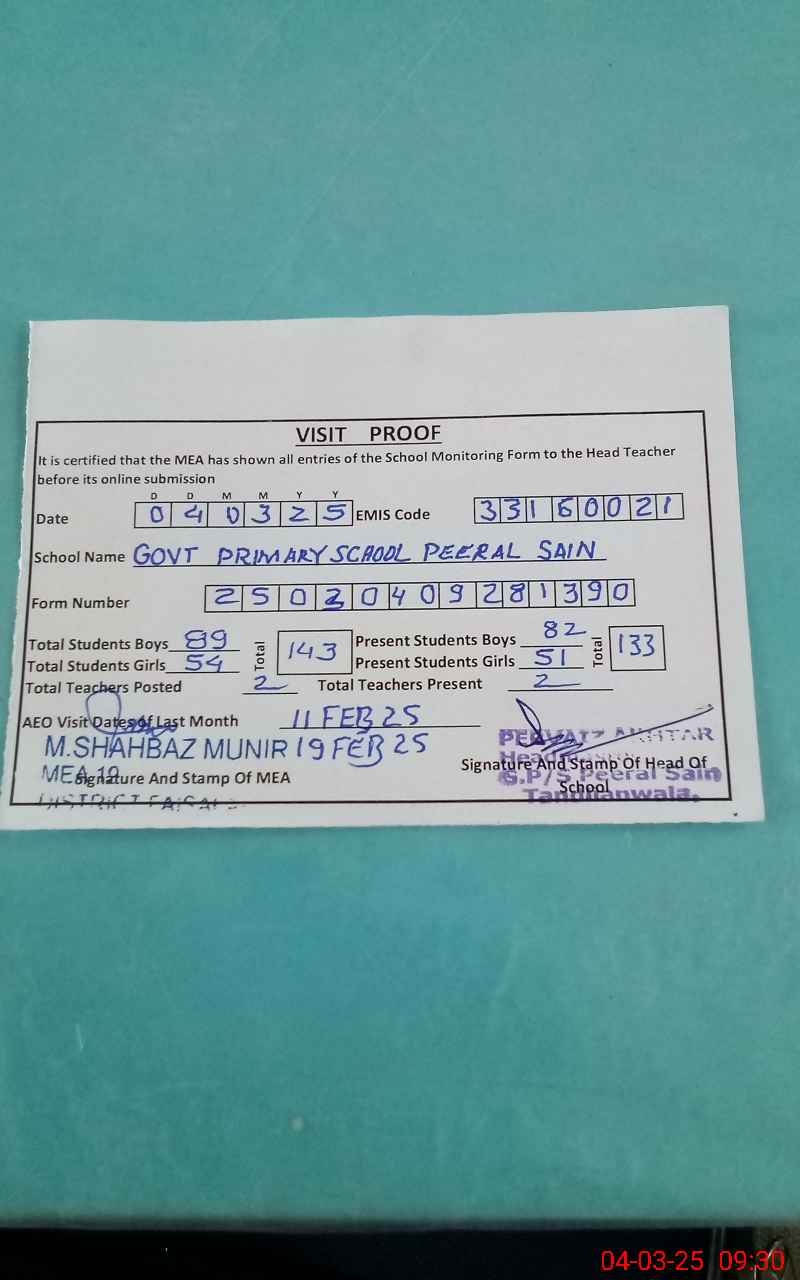 VISIT PROOF
It is certified that the MEA has shown all entries of the School Monitoring Form to the Head Teacher
before its online submission
D D M M Y Y
Date 0 4 0 3 2 5 EMIS Code 3 3 1 6 0 0 2 1
School Name GOVT PRIMARY SCHOOL PEERAL SAIN
Form Number 2 5 0 2 0 4 0 9 2 8 1 3 9 0
Total Students Boys 89 Total 143 Present Students Boys 82 Total 133
Total Students Girls 54 Present Students Girls 51
Total Teachers Posted 2 Total Teachers Present 2
AEO Visit Dates of Last Month 11 FEB 25
M.SHAHBAZ MUNIR 19 FEB 25
PERVAIZ AKHTAR
MEA 12
Signature And Stamp Of MEA
Signature And Stamp Of Head Of
School
G.P/S Peeral Sain
Tandlianwala.
DISTRICT
04-03-25 09:30